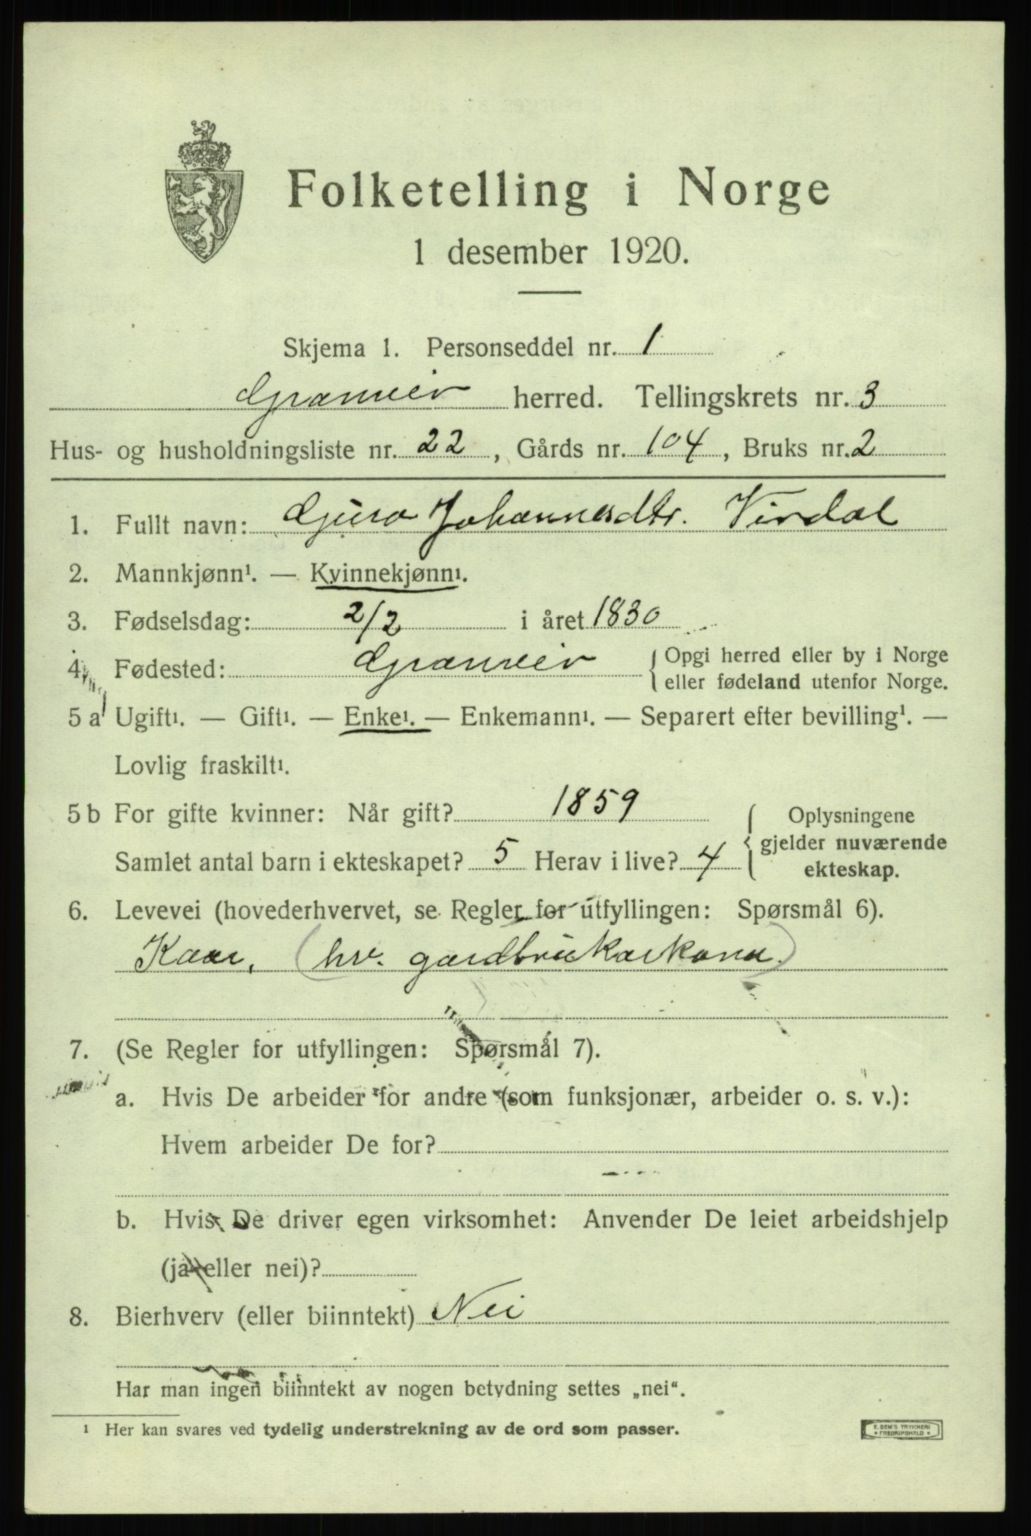 Folketelling i Norge
1 desember 1920.
Skjema 1. Personseddel nr. 1
Granvin herred. Tellingskrets nr. 3
Hus- og husholdningsliste nr. 22, Gårds nr. 104, Bruks nr. 2
1. Fullt navn: Guro Johannesdtr. Virdal
2. Mannkjønn¹. — Kvinnekjønn¹.
3. Fødselsdag: 2/2 i året 1830
4. Fødested: Granvin { Opgi herred eller by i Norge
eller fødeland utenfor Norge.
5 a Ugift¹. — Gift¹. — Enke¹. — Enkemann¹. — Separert efter bevilling¹. —
Lovlig fraskilt¹.
5 b For gifte kvinner: Når gift? 1859
Samlet antal barn i ekteskapet? 5 Herav i live? 4
{ Oplysningene
gjelder nuværende
ekteskap.
6. Levevei (hovederhvervet, se Regler for utfyllingen: Spørsmål 6).
Kaar, (hv. gardbrukarkona)
7. (Se Regler for utfyllingen: Spørsmål 7).
a. Hvis De arbeider for andre (som funksjonær, arbeider o. s. v.):
Hvem arbeider De for?
b. Hvis De driver egen virksomhet: Anvender De leiet arbeidshjelp
(ja eller nei)?
8. Bierhverv (eller biinntekt) Nei
Har man ingen biinntekt av nogen betydning settes „nei“.
¹ Her kan svares ved tydelig understrekning av de ord som passer.